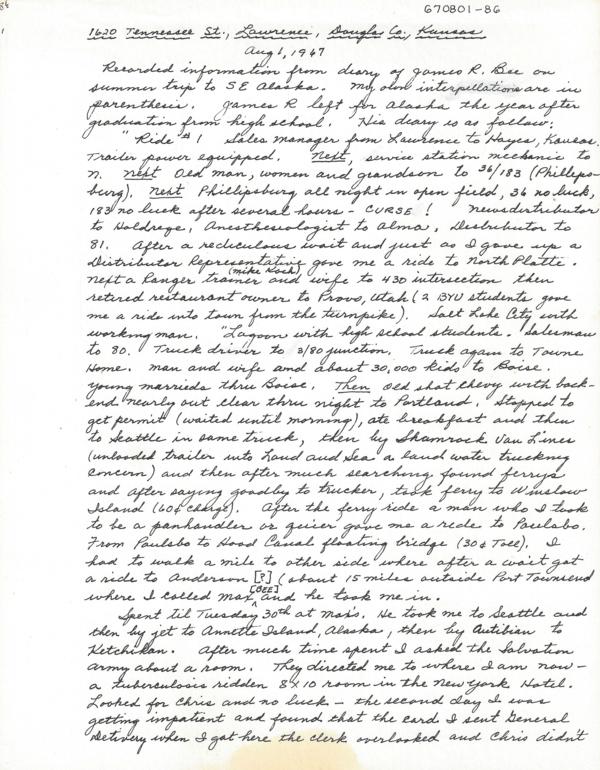 670801-86
1620 Tennessee St., Lawrence, Douglas Co., Kansas
Aug 1, 1967
Recorded information from diary of James R. Bee on
summer trip to SE Alaska. My own interpellations are in
parenthesis. James R left for Alaska the year after
graduation from high school. His diary is as follow:
"Ride #1 Sales manager from Lawrence to Hayes, Kansas.
Trailer power equipped. Next, service station mechanic to
N. Next Old man, women and grandson to 36/183 (Phillips-
burg). Next Phillipsburg all night in open field, 36 no luck,
183 no luck after several hours - CURSE! Newsdistributor
to Holdrege, Anesthesiologist to Alma, Distributor to
81. After a rediculous wait and just as I gave up a
Distributor Representative gave me a ride to North Platte.
Next a Ranger trainer (Mike Koch) and wife to 430 intersection then
retired restaurant owner to Provo, Utah (2 BYU students gave
me a ride into town from the turnpike). Salt Lake City with
working man. "Lagoon with high school students. Salesman
to 80. Truck driver to 3/80 junction. Truck again to Towne
Home. man and wife and about 30,000 kids to Boise.
Young marrieds thru Boise. Then old shot Chevy with back-
end nearly out clear thru night to Portland. Stopped to
get permit (waited until morning), ate breakfast and then
to Seattle in same truck, then by Shamrock Van Lines
(unloaded trailer into Land and Sea a land water trucking
concern) and then after much searching found ferrys
and after saying goodby to trucker, took ferry to Winslow
Island (60¢ charge). After the ferry ride a man who I took
to be a panhandler or geiser gave me a ride to Paulsabo.
From Paulsabo to Hood Canal floating bridge (30¢ Toll). I
had to walk a mile to other side where after a wait got
a ride to Anderson [?] (about 15 miles outside Port Townsend
where I called Max [BEE] and he took me in.
Spent til Tuesday 30th at Max's. He took me to Seattle and
then by jet to Annette Island, Alaska, then by Autibian to
Ketchikan. After much time spent I asked the Salvation
Army about a room. They directed me to where I am now -
a tuberculosis ridden 8x10 room in the New York Hotel.
Looked for Chris and no luck - the second day I was
getting impatient and found that the card I sent General
Delivery when I got here the clerk overlooked and Chris didn't